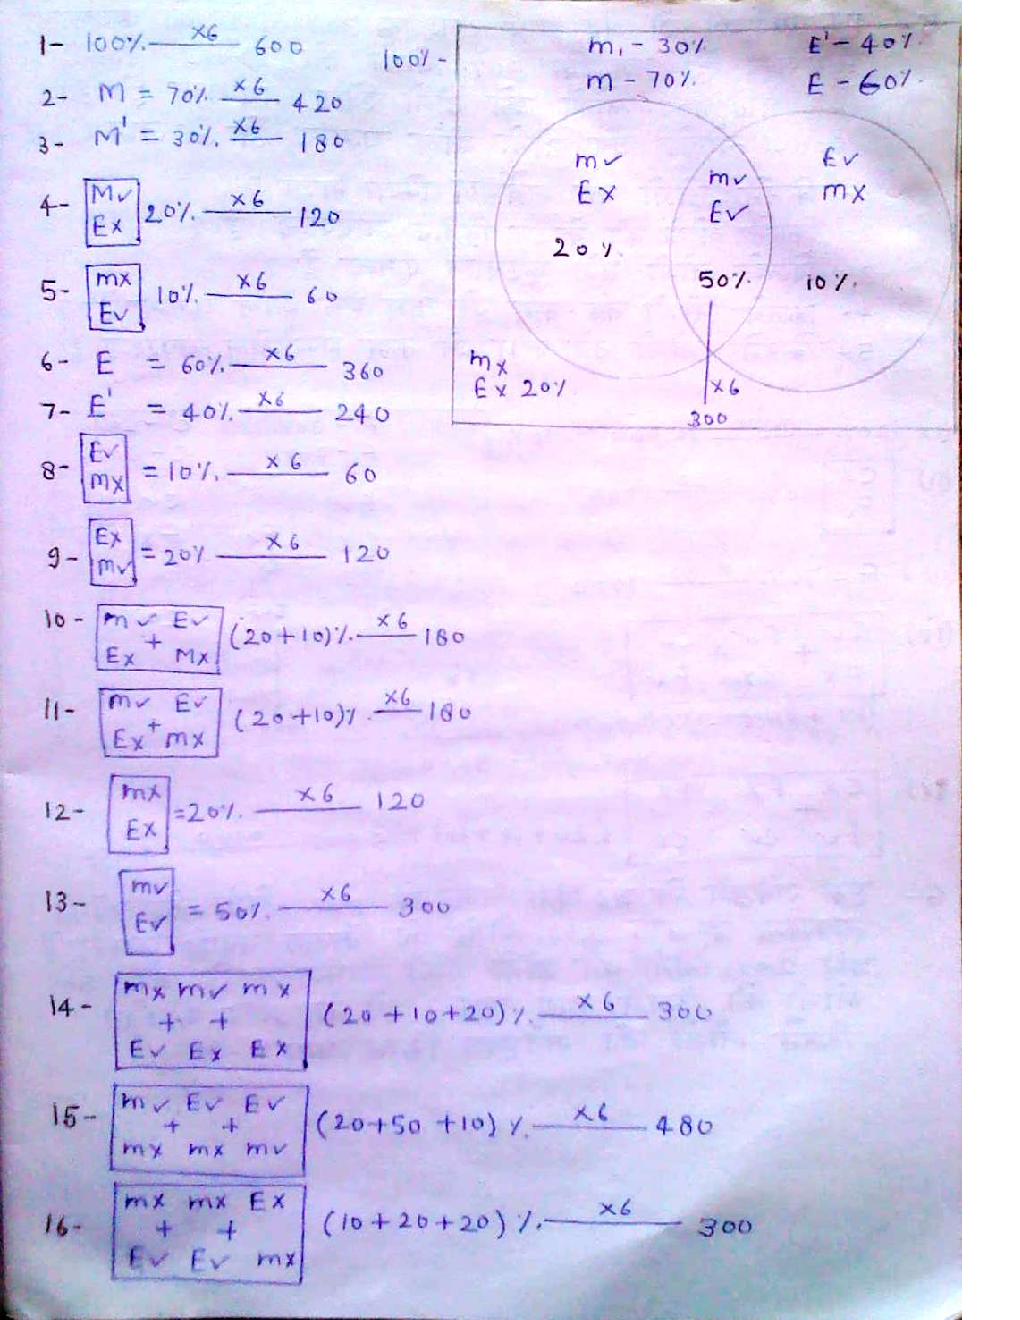 1- 100% ×6 600
2- M = 70% ×6 420
3- M' = 30% ×6 180
4- M✓ Ex 20% ×6 120
5- mx E✓ 10% ×6 60
6- E = 60% ×6 360
7- E' = 40% ×6 240
8- E✓ mx = 10% ×6 60
9- Ex m✓ = 20% ×6 120
10- m✓ E✓
+
Ex Mx (20+10)% ×6 180
11- m✓ E✓
+
Ex mx (20+10)% ×6 180
12- mx Ex = 20% ×6 120
13- m✓ E✓ = 50% ×6 300
14- mx m✓ mx
+ +
E✓ Ex Ex (20+10+20)% ×6 300
15- m✓ E✓ E✓
+ +
mx mx m✓ (20+50+10)% ×6 480
16- mx mx Ex
+ +
E✓ E✓ mx (10+20+20)% ×6 300
100% -
m, - 30% E' - 40%
m - 70% E - 60%
m✓
Ex
20%
m✓
E✓
50%
E✓
mx
10%
mx
Ex 20%
×6
300